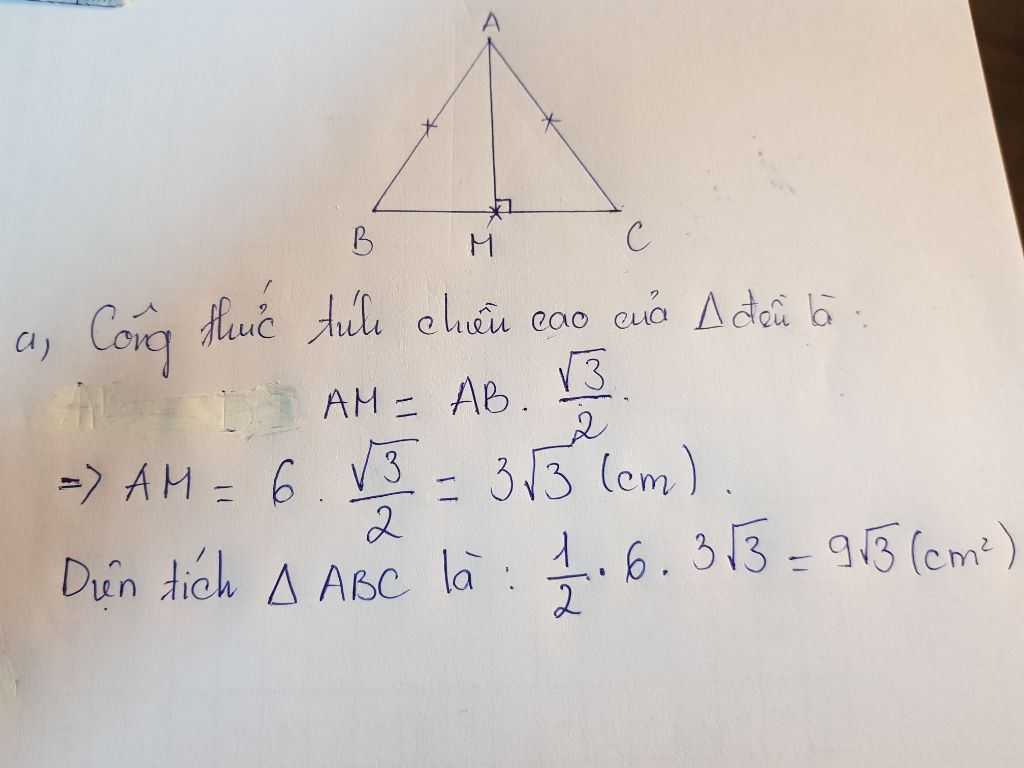 A
B M C
a, Công thức tính chiều cao của Δ đều là:
AM = AB. √3/2.
=> AM = 6 . √3/2 = 3√3 (cm).
Diện tích Δ ABC là: 1/2 . 6 . 3√3 = 9√3 (cm²)